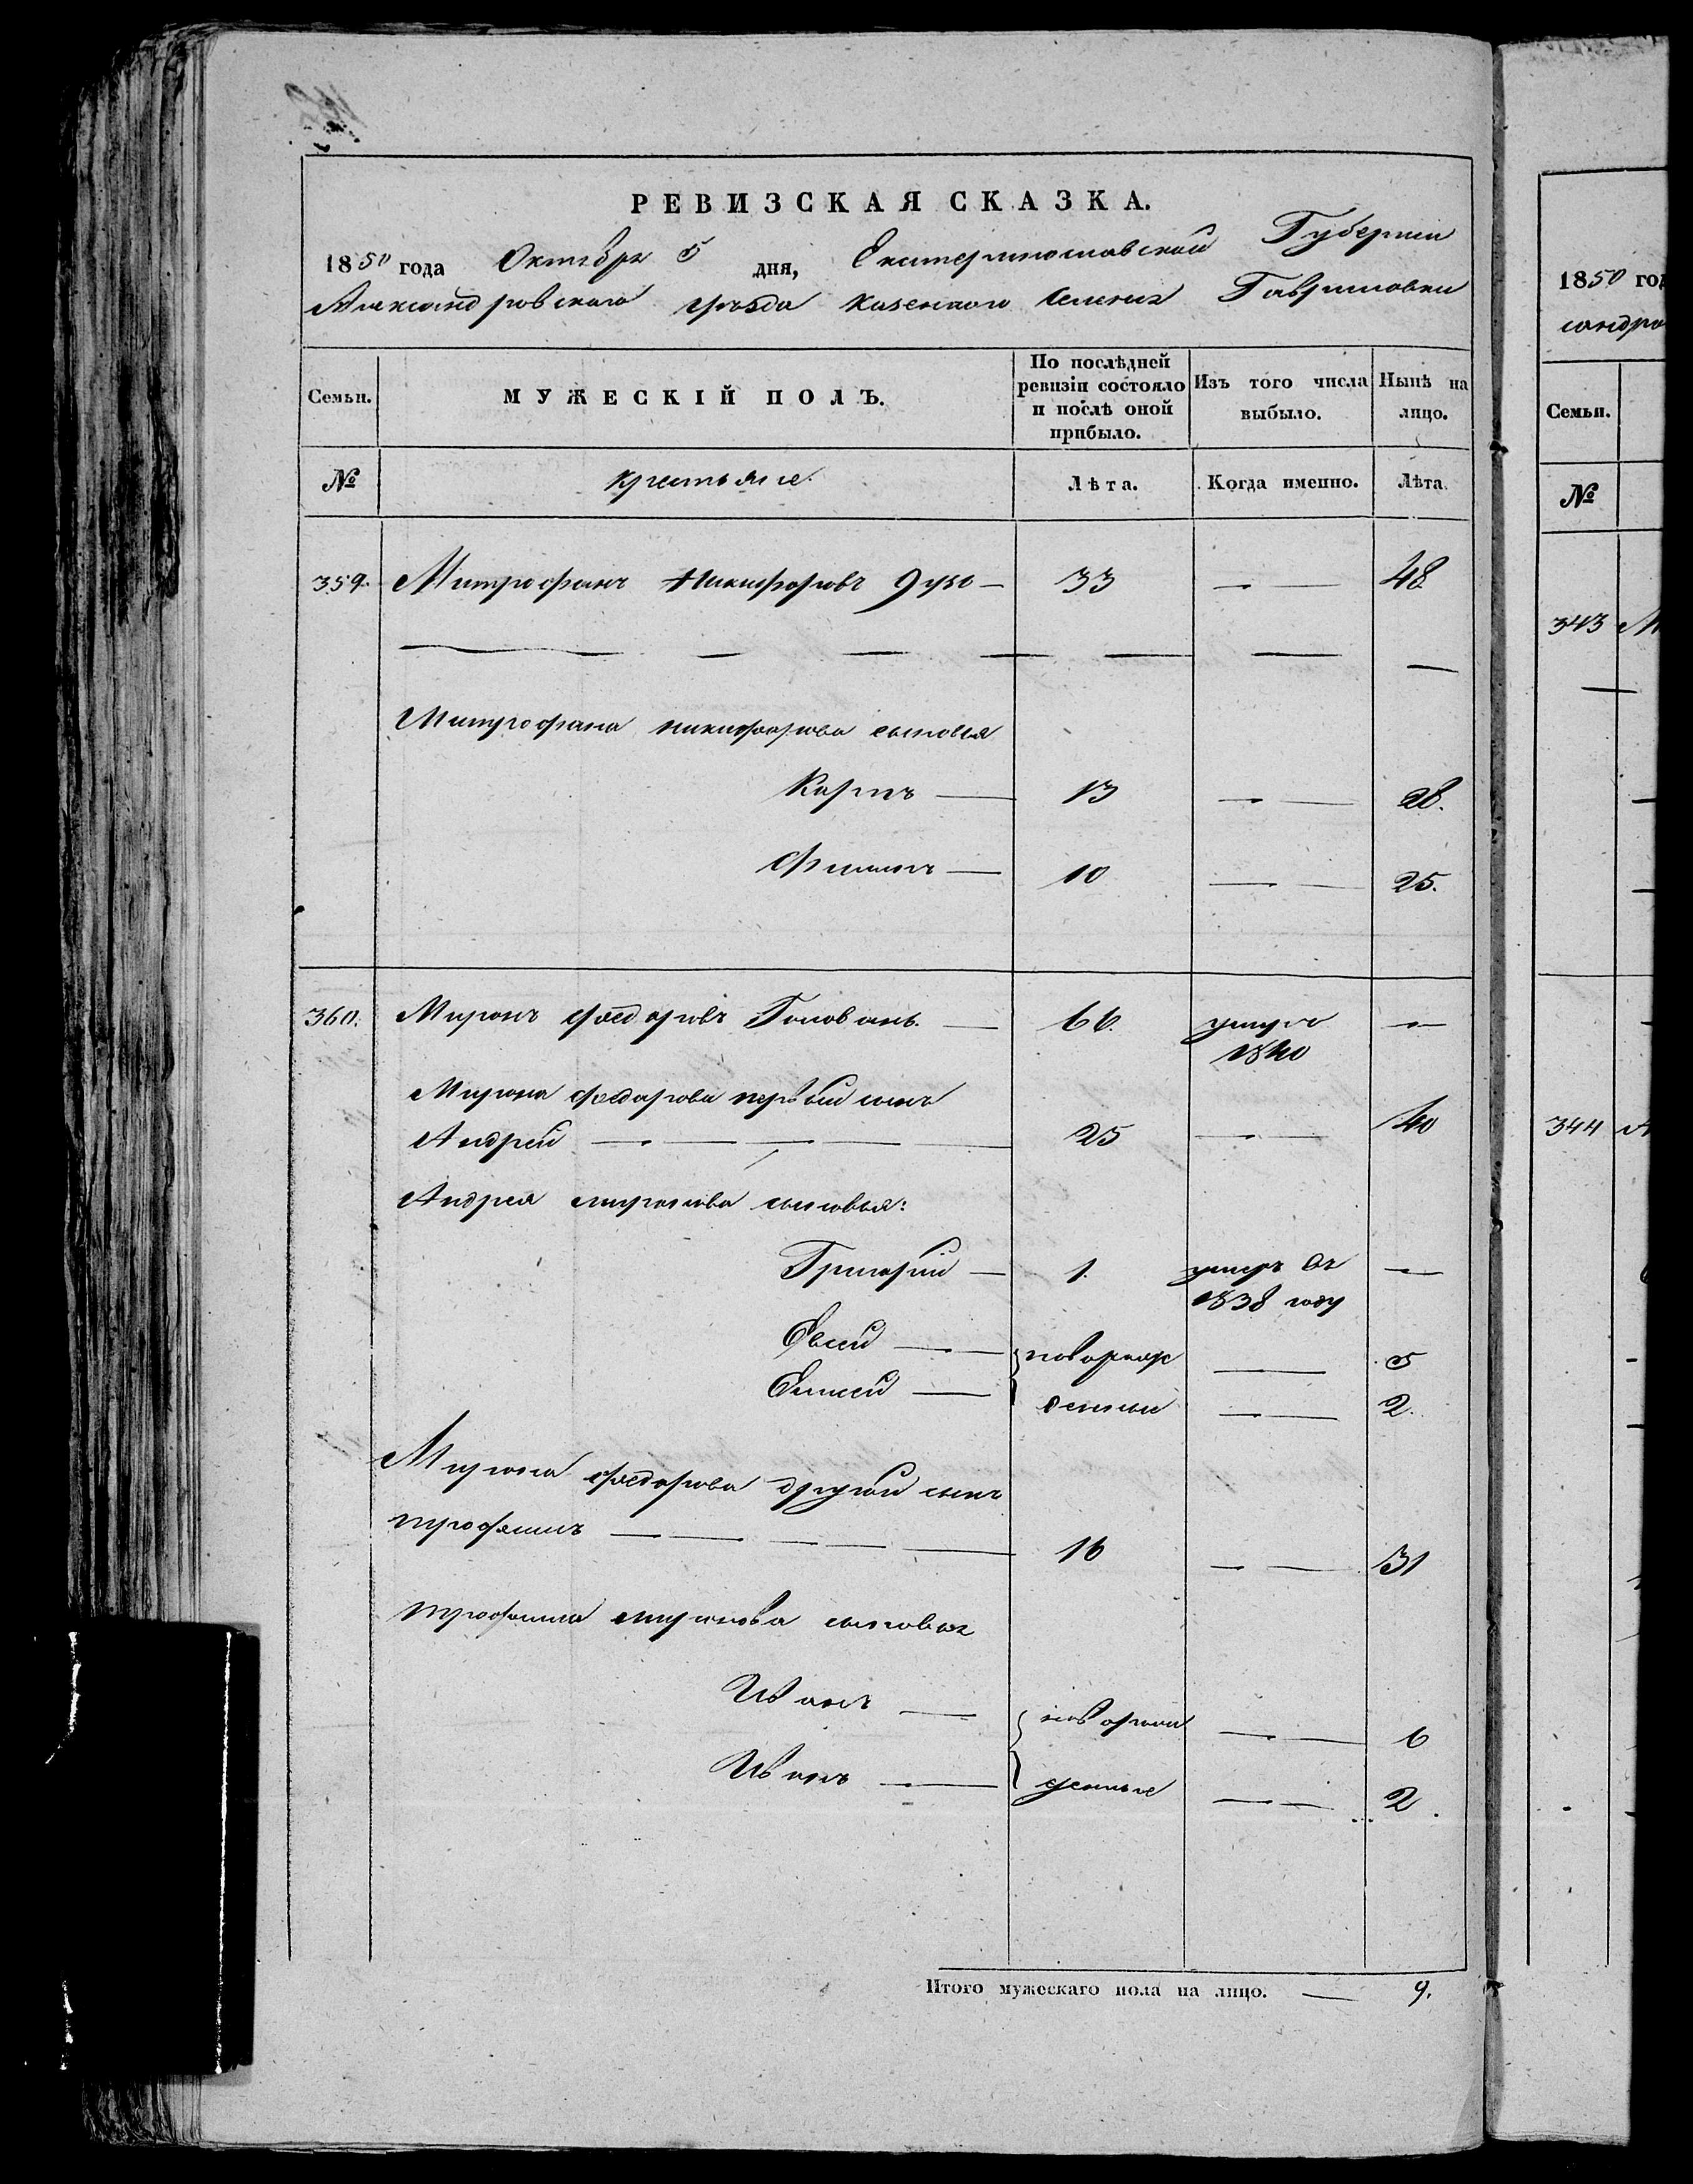 РЕВИЗСКАЯ СКАЗКА.
1850 года Октября 5 дня, Екатеринославской Губернии
Александровского уѣзда казенного селения Гавриловки
Семьи. МУЖЕСКІЙ ПОЛЪ. По послѣдней ревизіи состояло и послѣ оной прибыло. Изъ того числа выбыло. Нынѣ на лицо.
№ крестьяне. Лѣта. Когда именно. Лѣта.
359. Митрофанъ Никифоровъ — 33 — 48
Митрофана никифорова сыновья
Карпъ — 13 — 28.
Филипъ — 10 — 25.
360. Миронъ федоровъ Головань. — 66. умеръ 1840 —
Мирона федорова первый сынъ
Андрей — 25 — 40
Андрея миронова сыновья:
Григорий — 1. умеръ въ 1838 году —
Евсей — новорож — 5
Елисей — денныи — 2.
Мирона федорова другой сынъ
трофимъ — 16 — 31
трофима миронова сыновья
Иванъ — новорож — 6
Иванъ — денные — 2.
Итого мужескаго пола на лицо. — 9.
1850 год
сандро
Семьи.
№
343 М
344 А